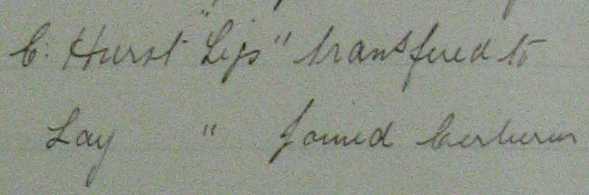 C. Hurst "Lejs" transfered to
Lay " joined Cerberus